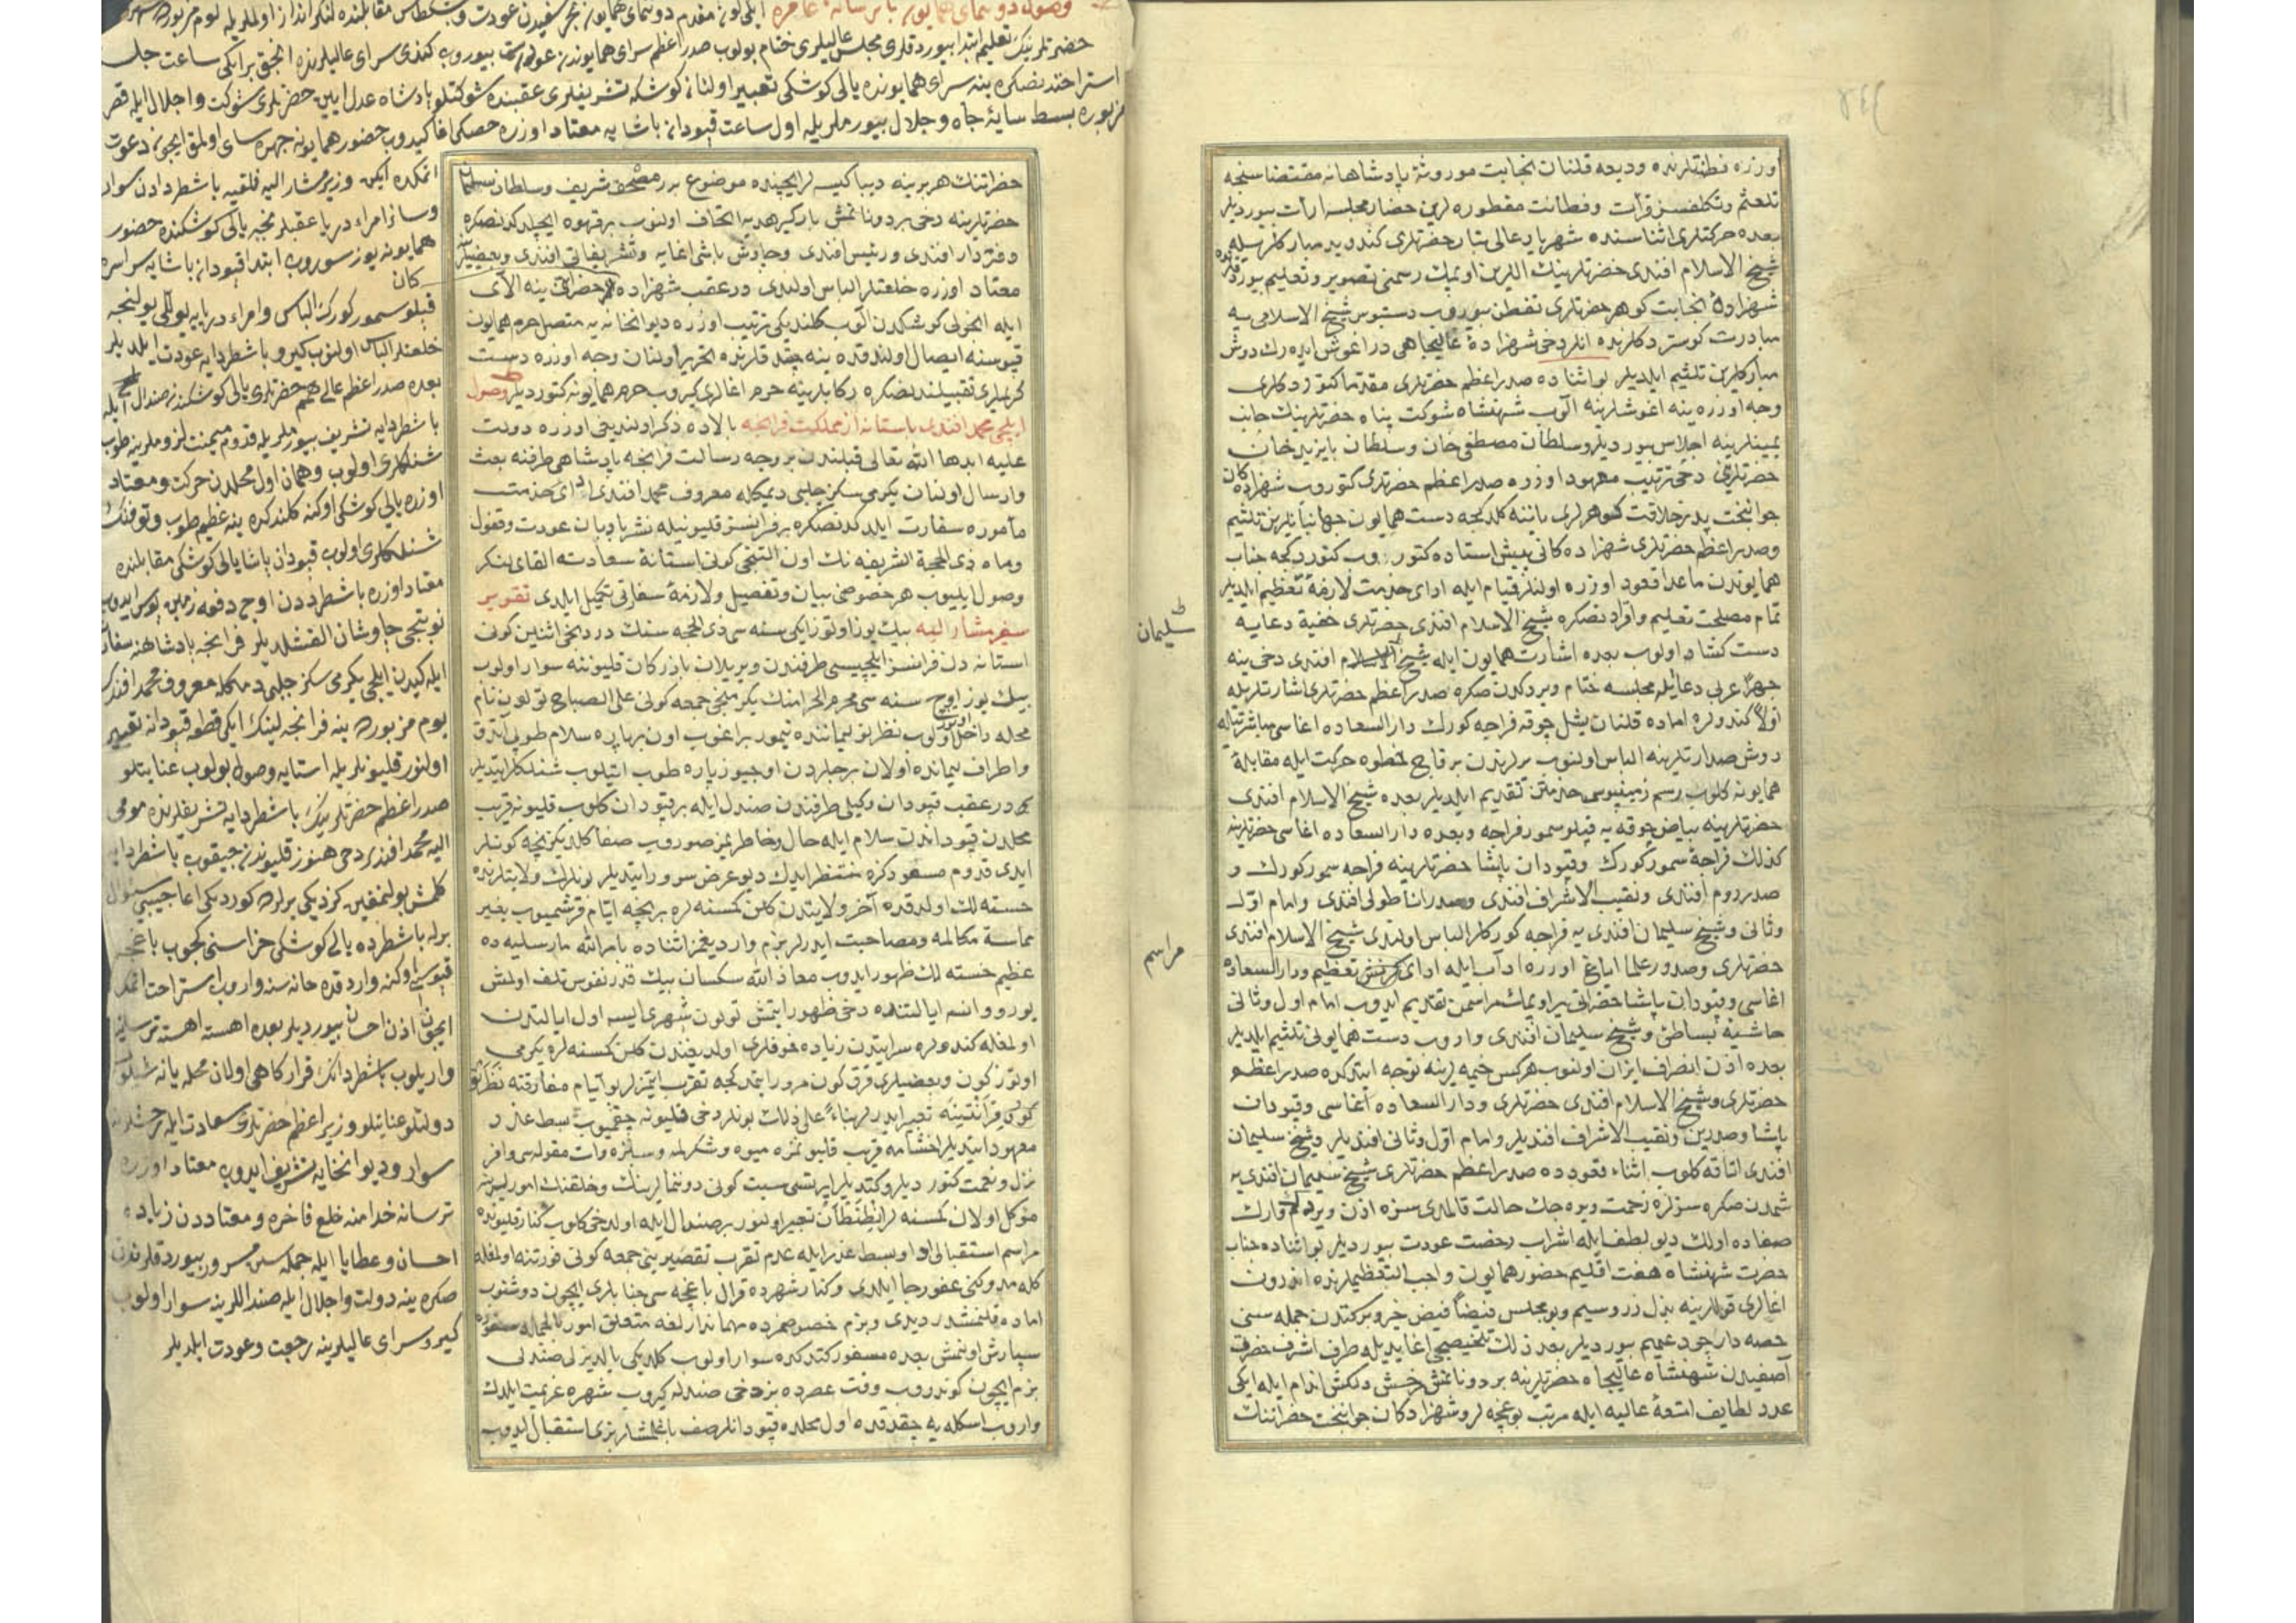 اوزره فطنتلرنده وديعه قلنان نجابت موروثۀ پادشاهانه مقتضاسنجه
تلعثم وتكلفسز قرأت وفطانت مفطوره لرين حضار مجلسه ارأت بيورديلر
بعده حركتلرى اثناسنده شهريار عالى تبار حضرتلرى كندو يد مباركلريله
شيخ الاسلام افندى حضرتلرينك اللرين اوپمك رسمنى تصوير وتعليم بيوردقلرنده
شهزادۀ نجابت كوهر حضرتلرى تفطن بيوروب دستبوس شيخ الاسلامى يه
مبادرت كوستردكلرنده انلر دخى شهزادۀ عاليجاهى در اغوش ايدرك دوش
مباركلرين تلثيم ايلديلر بو اثناده صدر اعظم حضرتلرى مقدما كتوردكلرى
وجه اوزره ينه اغوشلرينه آلوب شهنشاه شوكت پناه حضرتلرينك جانب
يمينلرينه اجلاس بيورديلر وسلطان مصطفى خان وسلطان بايزيد خان
حضرتلرينى دخى ترتيب معهود اوزره صدر اعظم حضرتلرى كتوروب شهزادكان
جوانبخت پدر خلافت كوهرلرى ياننه كلدكجه دست همايون جهانبانيلرين تلثيم
وصدر اعظم حضرتلرى شهزاده كانى پيش استاده كتوروب كتوردكجه جناب
همايوندن ماعدا قعود اوزره اولنلر قيام ايله اداى خدمت لازمۀ تعظيم ايلديلر
تمام مصلحت تعليم وافراد نصكره شيخ الاسلام افندى حضرتلرى خفية دعايه
دست كشاد اولوب بعده اشارت همايون ايله شيخ الاسلام افندى دخى ينه
جهرًا عربى دعا ايله مجلسه ختام ويردكدن صكره صدر اعظم حضرتلرى اشارتلريله
اولًا كندولره اماده قلنان يشل چوقه فراجه كورك دار السعاده اغاسى مباشرتيله
دوش صدارتلرينه الباس اولنوب يرلرندن بر قاج خطوه حركت ايله مقابلۀ
همايونه كلوب رسم زمينبوسى خدمتن تقديم ايلديلر بعده شيخ الاسلام افندى
حضرتلرينه بياض چوقه يه قپلو سمور فراجه وبعده دار السعاده اغاسى حضرتلرينه
كذلك فراجۀ سمور كورك وقپودان پاشا حضرتلرينه فراجه سمور كورك و
صدر روم افندى ونقيب الاشراف افندى وصدر اناطولى افندى وامام اوّل
وثانى وشيخ سليمان افندى يه فراجه كوركلر الباس اولندى شيخ الاسلام افندى
حضرتلرى وصدور علما اياغ اوزره آداب ايله اداى كرنش تعظيم ودار السعاده
اغاسى وقپودان پاشا حضراتى ير اوپمك مراسمن تقديم ايدوب امام اول وثانى
حاشيۀ بساطى وشيخ سليمان افندى واروب دست همايونى تلثيم ايلديلر
بعده اذن انصراف ارزان اولنوب هركس خيمه لرينه توجه ايتدكده صدر اعظم
حضرتلرى وشيخ الاسلام افندى حضرتلرى ودار السعاده آغاسى وقپودان
پاشا وصدرين ونقيب الاشراف افنديلر وامام اوّل وثانى افنديلر وشيخ سليمان
افندى اتاقه كلوب اثناء قعودده صدر اعظم حضرتلرى شيخ سليمان افندى يه
شمدن صكره سزلره زحمت ويره جك حالت قالمدى سزه اذن ويردك وارك
صفاده اولك ديو لطف ايله اشراب رخصت عودت بيورديلر بو اثناده جناب
حضرت شهنشاه هفت اقليم حضور همايون واجب التعظيملرنده اندرون
اغالرى قوللرينه بذل زر وسيم وبو مجلس فيض خير وبركتدن جمله سنى
حصه دار جود عميم بيورديلر بعد ذلك تلخيصجى اغا يديله طرف اشرف حضرت
آصفيدن شهنشاه عاليجاه حضرتلرينه بر دونانمش رخش دلكش اندام ايله ايكى
عدد لطايف امتعۀ عاليه ايله مرتب بوغچه لر وشهزادكان جوانبخت حضراتنك
سليمان
مراسم
حضراتنك هر برينه ديبا كيسه لر ايچينده موضوع برر مصحف شريف وسلطان سليمان
حضرتلرينه دخى بر دونانمش باركير هديه اتحاف اولنوب بر قهوه ايچيلدكدنصكره
دفتردار افندى ورئيس افندى وچاوش باشى اغايه وتشريفاتى افندى وبعضيلره
معتاد اوزره خلعتلر الباس اولندى در عقب شهزاده لر حضراتى ينه الاى
ايله انجولى كوشكدن آلوب كلنديكى ترتيب اوزره ديوانخانه يه متصل حرم همايون
قپوسنه ايصال اولندقده ينه چقدقلرنده تحرير اولنان وجه اوزره دست
كريملرى تقبيلندنصكره ركابلرينه حرم اغالرى كيروب حرم همايونه كتورديلر وصول
ايلچى محمد افندى باستانه از مملكت فرانچه بالاده ذكر اولنديغى اوزره دولت
عليه ابدها الله تعالى قبلندن بر وجه رسالت فرانچه پادشاهى طرفنه بعث
وارسال اولنان يكرمى سكز چلبى ديمكله معروف محمد افندى اداى خدمت
مأموره سفارت ايلدكدنصكره بر فرانسز قليونيله نشر بادبان عودت وقفول
وماه ذى الحجة الشريفه نك اون التنجى كونى استانۀ سعادته القاى لنكر
وصول ايليوب هر خصوصى بيان وتفصيل ولازمۀ سفارتى تكميل ايلدى تقرير
سفير مشار اليه بيك يوز اوتوز ايكى سنه سى ذى الحجه سنك دردنجى اثنين كونى
استانه دن فرانسز ايلچيسى طرفندن ويريلان بازركان قليوننه سوار اولوب
بيك يوز اوتوز اوچ سنه سى محرم الحرامنك يكرمنجى جمعه كونى على الصباح تولون نام
محله داخل اولوب نظر بو ليماننده تيمور براغوب اون بر پاره سلام طوپى آتدق
واطراف ليمانده اولان برجلردن اوچيوز پاره طوپ اتيلوب شنلكلر ايتديلر
در عقب قپودان وكيلى طرفندن صندل ايله بر قپودان كلوب قليونه قريب
محلدن قپوداندن سلام ايله حال وخاطريمز صوروب صفا كلديكز نيچه كونلر
ايدى قدوم مسعودكزه منتظر ايدك ديو عرض سرور ايتديلر بونلرك ولايتلرنده
خسته لك اولدقده آخر ولايتدن كلن كمسنه لره بر نيچه ايام قرشميوب بغير
مماسة مكالمه ومصاحبت ايدرلر بزم وارديغمز اثناده بامر الله مارسليه ده
عظيم خسته لك ظهور ايدوب معاذ الله سكسان بيك قدر نفوس تلف اولمش
پورووانس ايالتنده دخى ظهور ايتمش تولون شهرى ايسه اول ايالتدن
اولمغله كندولره سرايتدن زياده خوفلرى اولديغندن كلن كمسنه لره يكرمى
اوتوز كون وبعضيلرى قرق كون مرور ايتمدكجه تقرب ايتمزلر بو ايام مفارقته نظر
كونى قرانتينه تعبير ايدرلر بناءً على ذلك بونلر دخى قليونه چقميوب بسط عذر و
معهود ايتديلر اخشامه قريب قليونمزه ميوه وشكرلمه وسبزه وات مقوله سى وافر
نزل ونعمت كتورديلر وكتديلر ايرتسى سبت كونى دونانمالرينك وخلقنك امورلرينه
موكل اولان كمسنه لر انطنطان تعبير اولنور بر صندل ايله اولدخى كلوب كنار قليونده
مراسم استقبالى ادا وبسط عذر ايله عدم تقرب تقصيرينى جمعه كونى فورتنه اولمغله
كله مدوكنى عفو رجا ايلدى وكنار شهرده قرال باغچه سى جنابلرى ايچون دوشنوب
اماده قلنمشدر ديدى وبزم خصوصمزده مهماندارلغه متعلق امور بالجمله
سپارش اولنمش بعده مسفور كتدكده سوار اولوب كلديكى يالديزلى صندلى
بزم ايچون كوندروب وقت عصرده بز دخى صندله كيروب شهره عزيمت ايلدك
واروب اسكله يه چقدقده اول محلده قپودانلر صف باغلمشلر بزى استقبال ايدوب
حضرتلرينك تعليم ابتدا بيوردقلرى مجلس عاليلرى ختام بولوب صدر اعظم سراى همايوندن عودت بيوروب كندى سراى عاليلرنده انجق بر ايكى ساعت جلسۀ
استراحتدنصكره ينه سراى همايونده يالى كوشكى تعبير اولنان كوشكه تشريفلرى عقبنده شوكتلو پادشاه عدل ايين حضرتلرى شوكت واجلال ايله قصر
مزبوره بسط سايۀ جاه وجلال بيورملريله اول ساعت قپودان پاشا يه معتاد اوزره خصكى اغا كيدوب حضور همايونه چهره ساى اولمق ايچون دعوت
اتمكده ايكن وزير مشار اليه فلقيه باشطردادن سوار
وسائر امراء دريا عقبلرنجه يالى كوشكنده حضور
همايونه يوز سوروب ابتدا قپودان پاشايه سراسره
قپلو سمور كورك الباس وامراء دريايه يوللى يولنجه
خلعتلر الباس اولنوب كيرو باشطردايه عودت ايلديلر
بعده صدر اعظم عالى همم حضرتلرى يالى كوشكندن صندال ايله
باشطردايه تشريف بيورملريله قدوم ميمنت لزوملرينه طوپ
شنلكلرى اولوب وهمان اول محلدن حركت ومعتاد
اوزره يالى كوشكى اوكنه كلندكده ينه عظيم طوپ وتوفنك
شنلكلرى اولوب قپودان پاشا يالى كوشكى مقابلنده
معتاد اوزره باشطردادن اوچ دفعه زمين بوس ايدوب
نوبتجى چاوشان القشلديلر فرانچه پادشاهنه سفارت
ايله كيدن ايلچى يكرمى سكز چلبى دمكله معروف محمد افندى
يوم مزبورده ينه فرانچه لينك ايكى قطعه قپودانه تعبير
اولنور قليونلريله استانه يه وصول بولوب عنايتلو
صدر اعظم حضرتلرينك باشطردايه تشريفلرنده مومى
اليه محمد افندى دخى هنوز قليوندن چيقوب باشطردايه
كلمش بولنمغين كزديكى يرلرده كورديكى اعاجيبى سؤال
برله باشطرده يالى كوشكى حذاسنى كچوب باغچه
قپوسى اوكنه واردقده خانه سنه واروب استراحت اتمك
ايچون اذن احسان بيورديلر بعده اهسته اهسته ترسانه يه
واريلوب باشطردانك قراركاهى اولان محله يانه شيلوب
دولتلو عنايتلو وزير اعظم حضرتلرى سعادت ايله رخشلرينه
سوار وديوانخانه يه تشريف ايدوب معتاد اوزره
ترسانه خدامنه خلع فاخره ومعتاددن زياده
احسان وعطايا ايله جمله سن مسرور بيوردقلرندن
صكره ينه دولت واجلال ايله صندللرينه سوار اولوب
كيرو سراى عاليلرينه رجعت وعودت ايلديلر